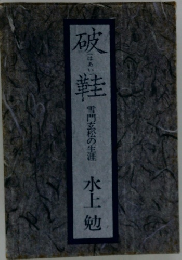 破鞋
はあい
雪門玄松の生涯
水上勉